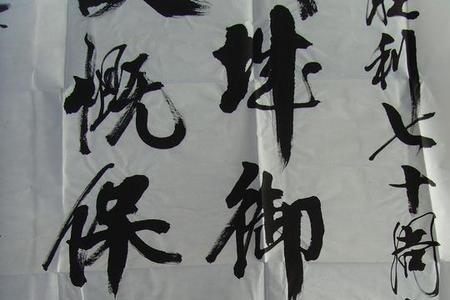 胜利七十周
御
慨保